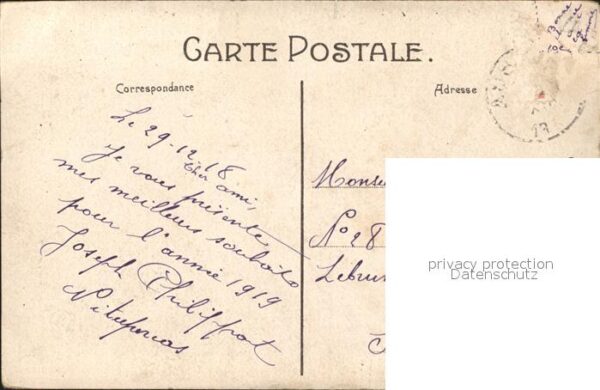 CARTE POSTALE.
Correspondance
Adresse
Le 29-12-18
Cher ami,
Je vous présente
mes meilleurs souhaits
pour l'année 1919
Joseph Philippot
N° 28
privacy protection
Datenschutz